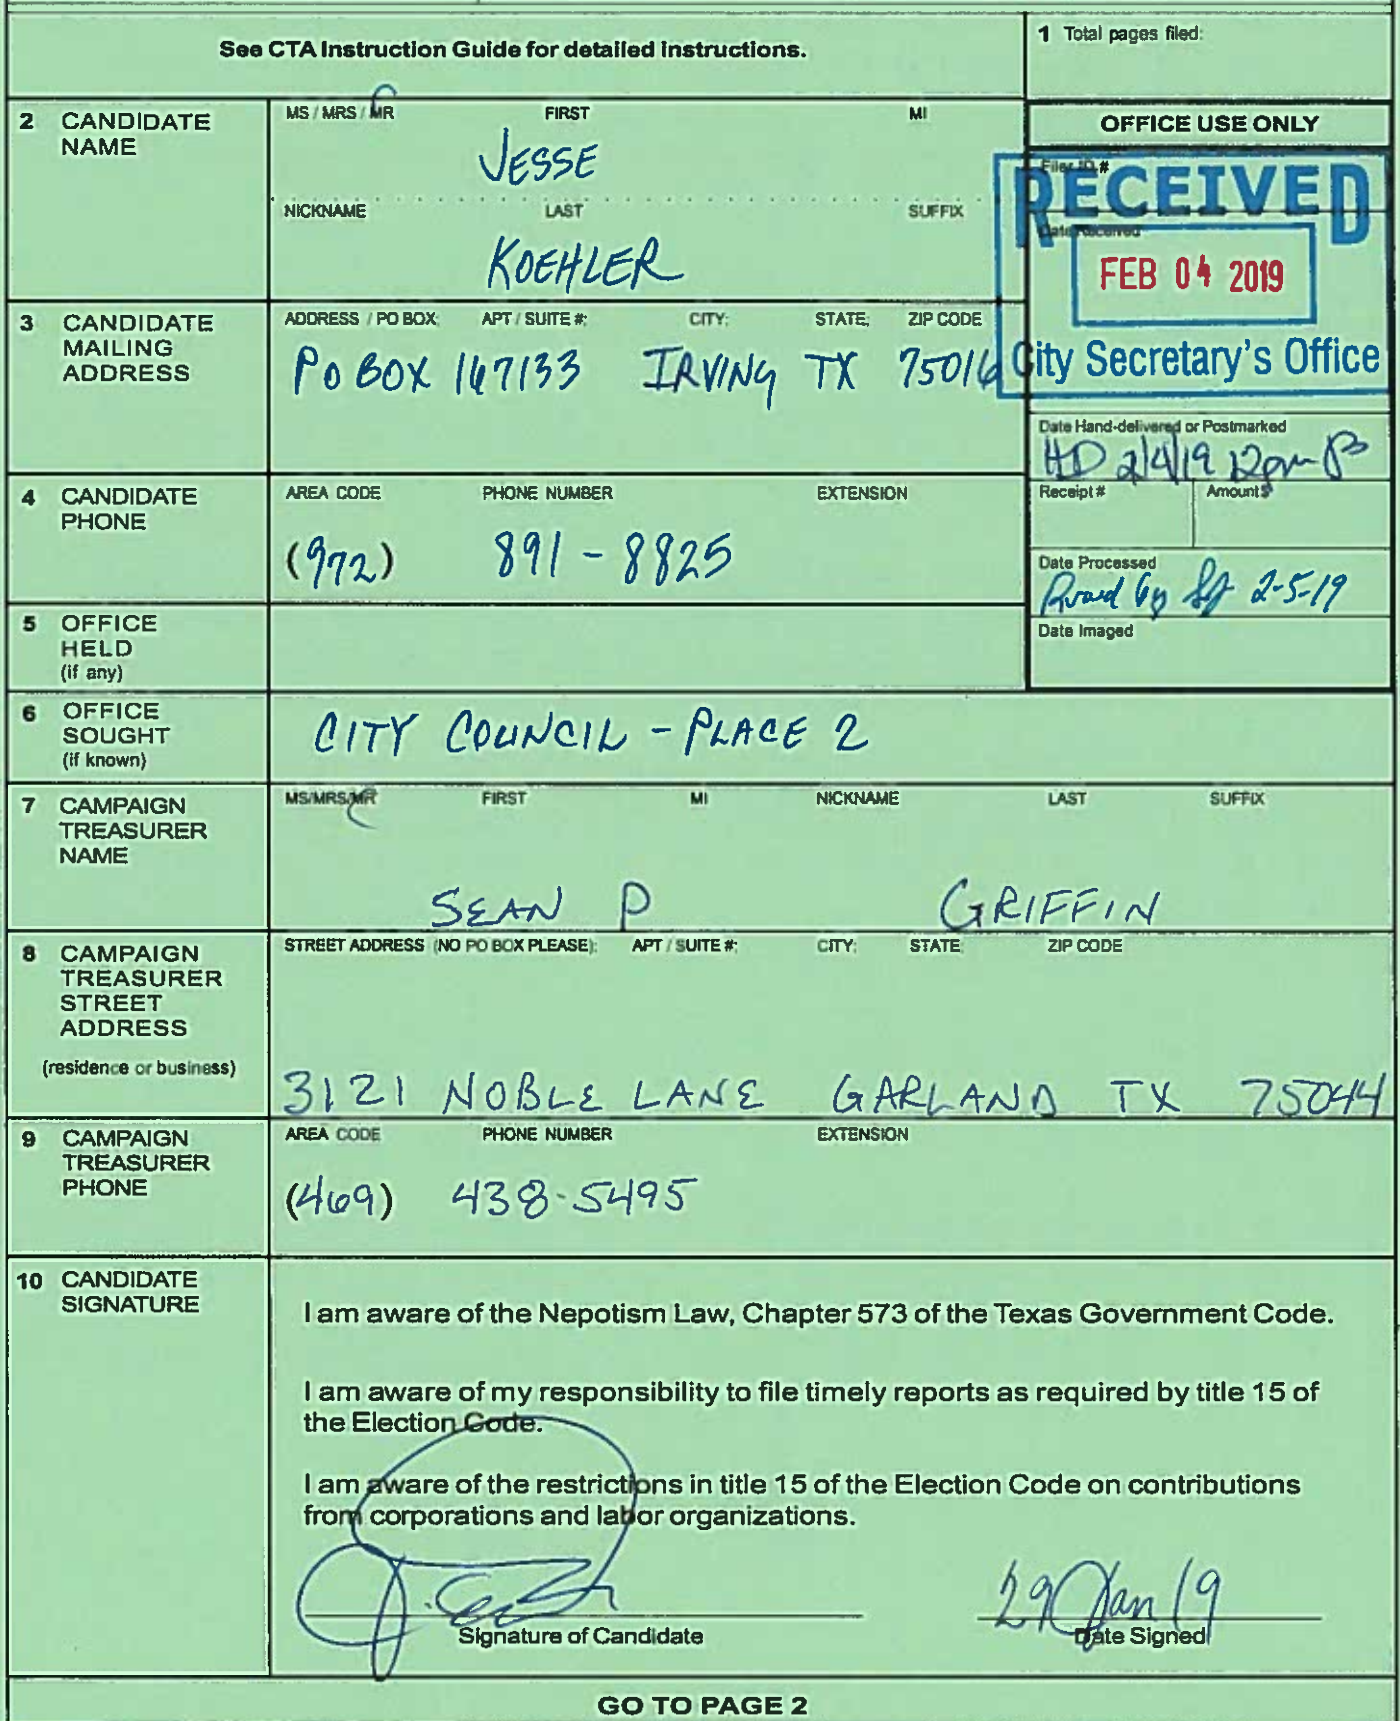 See CTA Instruction Guide for detailed instructions.
1 Total pages filed:
2 CANDIDATE NAME
MS / MRS / MR FIRST MI
JESSE
NICKNAME LAST SUFFIX
KOEHLER
OFFICE USE ONLY
Filer ID #
RECEIVED
Date Received
FEB 04 2019
City Secretary's Office
3 CANDIDATE MAILING ADDRESS
ADDRESS / PO BOX; APT / SUITE #; CITY; STATE; ZIP CODE
PO BOX 167133 IRVING TX 75016
Date Hand-delivered or Postmarked
HD 2/4/19 12pm
4 CANDIDATE PHONE
AREA CODE PHONE NUMBER EXTENSION
(972) 891-8825
Receipt # Amount $
Date Processed
2-5-19
Date Imaged
5 OFFICE HELD (if any)
6 OFFICE SOUGHT (if known)
CITY COUNCIL - PLACE 2
7 CAMPAIGN TREASURER NAME
MS/MRS/MR FIRST MI NICKNAME LAST SUFFIX
SEAN P GRIFFIN
8 CAMPAIGN TREASURER STREET ADDRESS
(residence or business)
STREET ADDRESS (NO PO BOX PLEASE); APT / SUITE #; CITY; STATE; ZIP CODE
3121 NOBLE LANE GARLAND TX 75044
9 CAMPAIGN TREASURER PHONE
AREA CODE PHONE NUMBER EXTENSION
(469) 438-5495
10 CANDIDATE SIGNATURE
I am aware of the Nepotism Law, Chapter 573 of the Texas Government Code.
I am aware of my responsibility to file timely reports as required by title 15 of
the Election Code.
I am aware of the restrictions in title 15 of the Election Code on contributions
from corporations and labor organizations.
29 Jan 19
Signature of Candidate Date Signed
GO TO PAGE 2